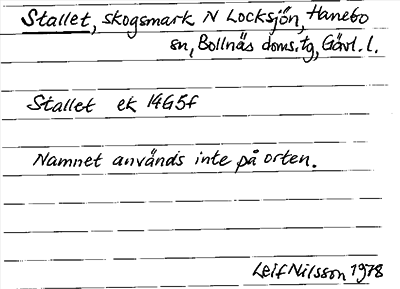 Stallet, skogsmark N Locksjön, Hanebo
sn, Bollnäs doms.tg, Gävl.l.
Stallet ek 14G5f
Namnet används inte på orten.
Leif Nilsson 1978